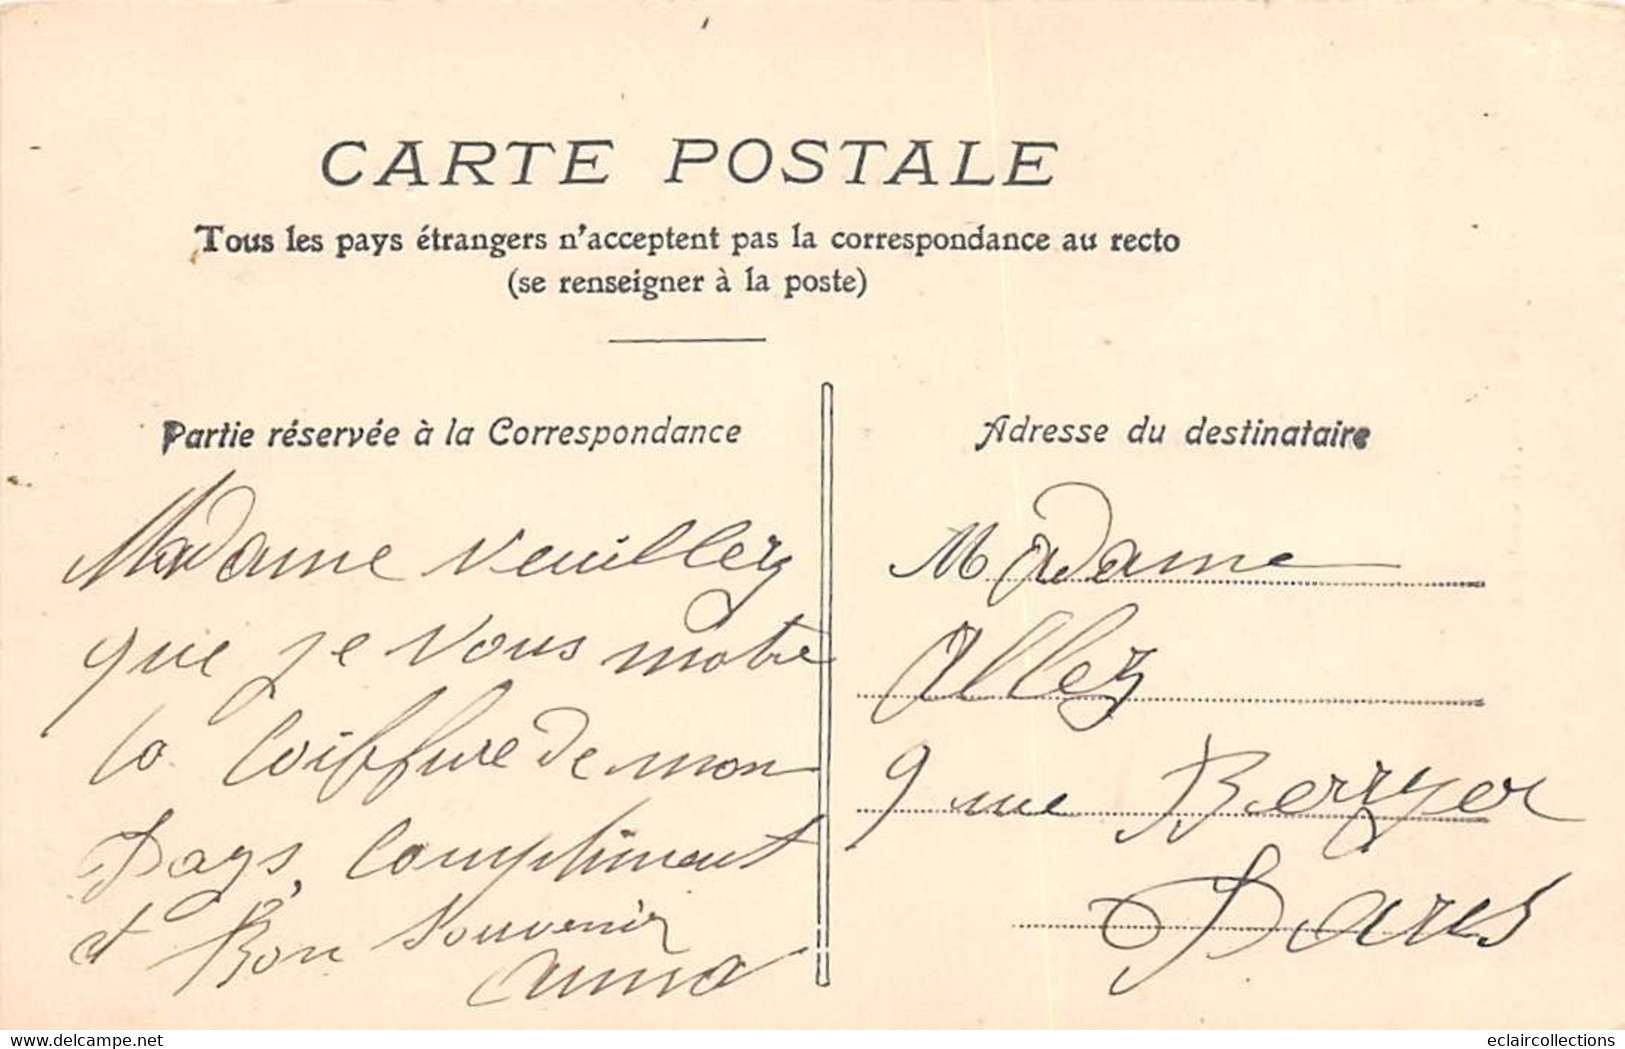 CARTE POSTALE
Tous les pays étrangers n'acceptent pas la correspondance au recto
(se renseigner à la poste)
Partie réservée à la Correspondance
Madame Veuillez
que je vous motre
la Coiffure de mon
Pays, Compliment
et Bon Souvenir
Anna
Adresse du destinataire
Madame
Allez
9 rue Berryer
Paris
delcampe.net
eclaircollections